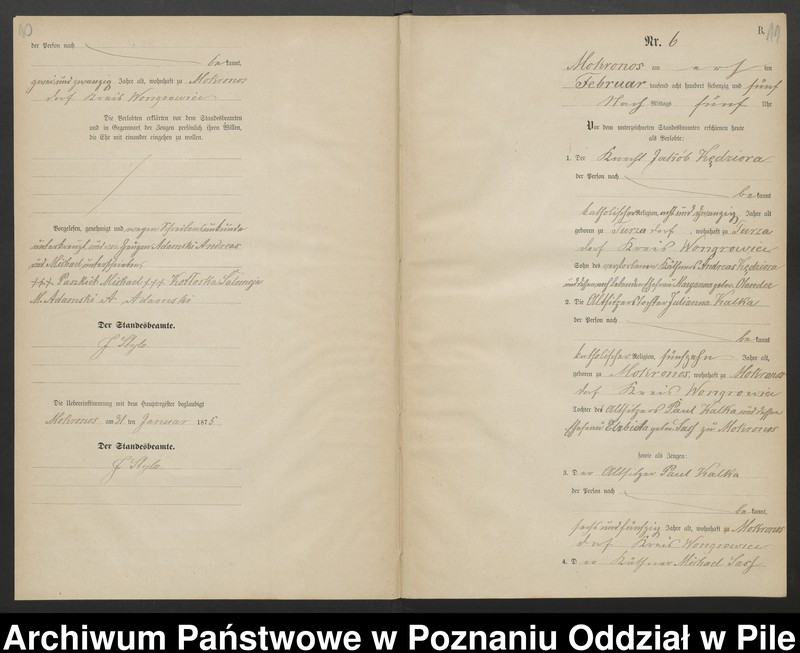 10
der Person nach
be kannt,
zweiundzwanzig Jahre alt, wohnhaft zu Mokronos
dorf Kreis Wongrowiec
Die Verlobten erklärten vor dem Standesbeamten
und in Gegenwart der Zeugen persönlich ihren Willen,
die Ehe mit einander eingehen zu wollen.
Vorgelesen, genehmigt und wegen Schreibensunkunde
unterkreuzt und von Zeugen Adamski Andreas
und Michael unterschrieben.
+++ Michael +++ Salomeja
M. Adamski A. Adamski
Der Standesbeamte.
J Style
Die Uebereinstimmung mit dem Hauptregister beglaubigt
Mokronos am 31 ten Januar 1875.
Der Standesbeamte.
J Style
B. 11
Nr. 6
Mokronos am erst en
Februar tausend acht hundert siebenzig und fünf
Nach Mittags fünf Uhr
Vor dem unterzeichneten Standesbeamten erschienen heute
als Verlobte:
1. Der Knecht Jakób Kędziora
der Person nach
be kannt
katholischer Religion, acht und zwanzig Jahre alt
geboren zu Turza dorf, wohnhaft zu Turza
dorf Kreis Wongrowiec
Sohn des verstorbenen Käthners Andreas Kędziora
und dessen noch lebenden Ehefrau Maryanna gebor.
2. Die Altsitzerstochter Julianna Kalka
der Person nach
be kannt
katholischer Religion, fünfzehn Jahre alt,
geboren zu Mokronos, wohnhaft zu Mokronos
dorf Kreis Wongrowiec
Tochter des Altsitzers Paul Kalka und dessen
Ehefrau Elzbieta gebor. zu Mokronos
sowie als Zeugen:
3. Der Altsitzer Paul Kalka
der Person nach
be kannt,
sechs und fünfzig Jahre alt, wohnhaft zu Mokronos
dorf Kreis Wongrowiec
4. Der Käthner Michael
Archiwum Państwowe w Poznaniu Oddział w Pile